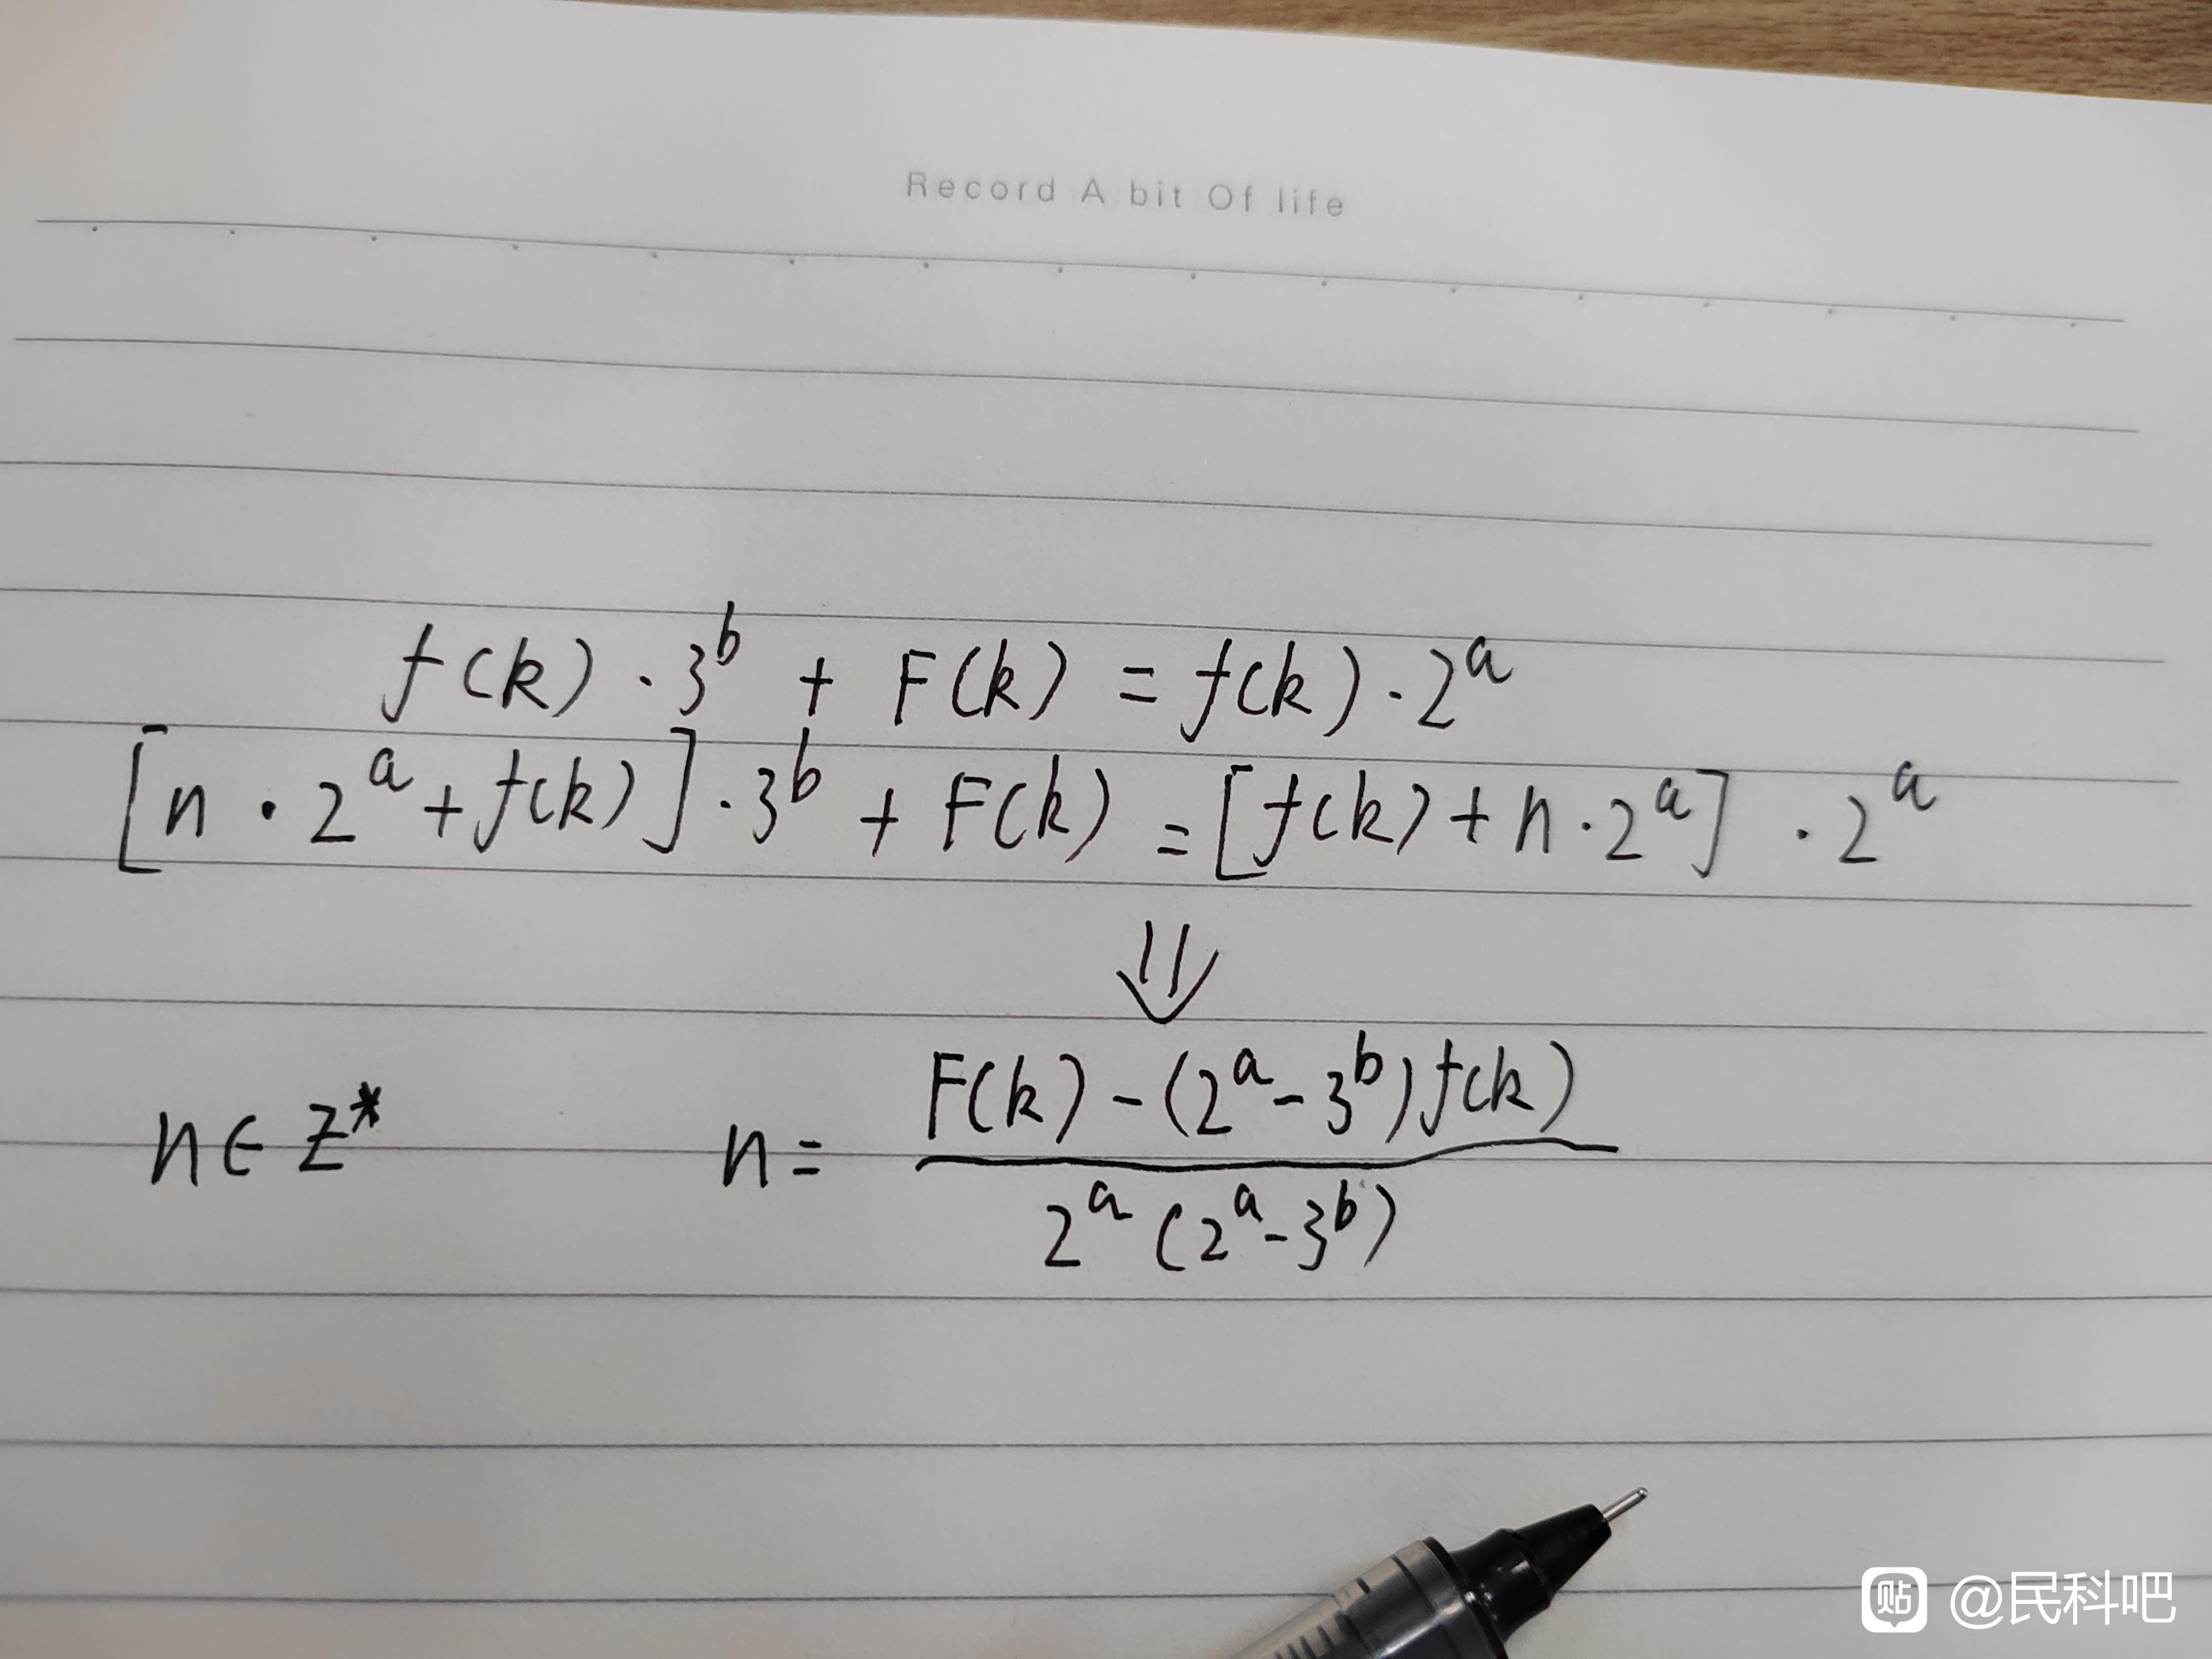 Record A bit Of life
f(k)·3^b + F(k) = f(k)·2^a
[n·2^a+f(k)]·3^b + F(k) = [f(k)+n·2^a]·2^a
⇓
n∈Z* n= F(k)-(2^a-3^b)f(k) / 2^a(2^a-3^b)
贴 @民科吧